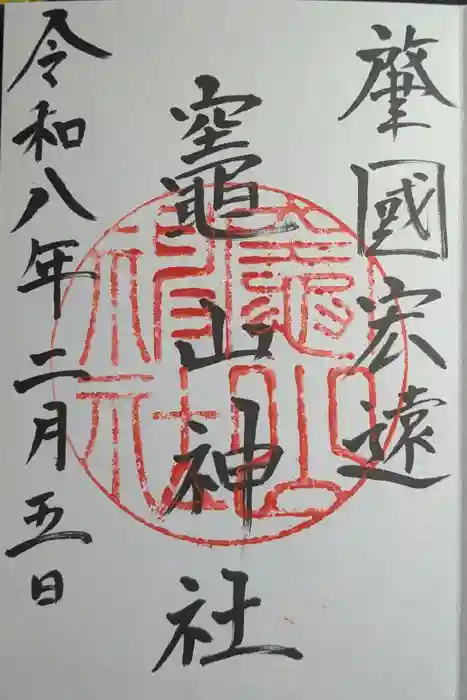 肇國宏遠
竈山神社
令和八年二月五日
竈山神社